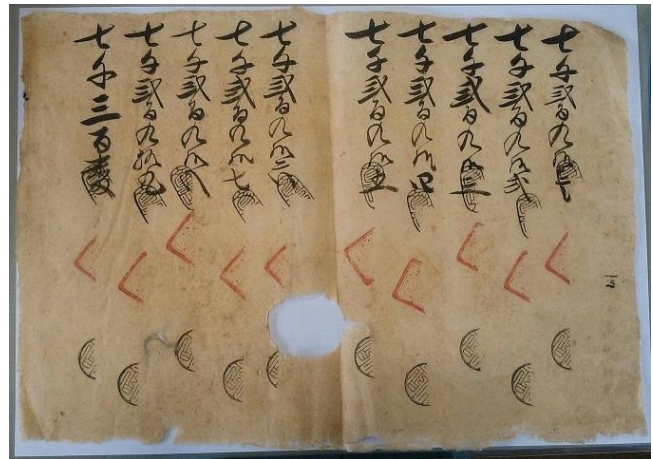 七千弐百九拾壱
七千弐百九拾弐
七千弐百九拾三
七千弐百九拾四
七千弐百九拾五
七千弐百九拾六
七千弐百九拾七
七千弐百九拾八
七千弐百九拾九
七千三百